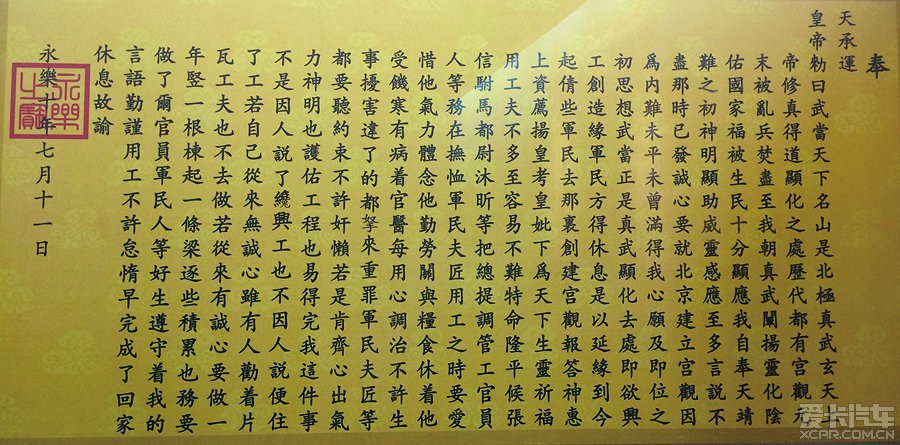 奉
天承運
皇帝勅曰武當天下名山是北極真武玄天上
帝修真得道顯化之處歷代都有宮觀元
末被亂兵焚盡至我朝真武闡揚靈化陰
佑國家福被生民十分顯應我自奉天靖
難之初神明顯助威靈感應至多言說不
盡那時已發誠心要就北京建立宮觀因
爲內難未平未曾滿得我心願及即位之
初思想武當正是真武顯化去處即欲興
工創造緣軍民方得休息是以延緣到今
起倩些軍民去那裏創建宮觀報答神惠
上資薦揚皇考皇妣下爲天下生靈祈福
用工夫不多至容易不難特命隆平候張
信駙馬都尉沐昕等把總提調管工官員
人等務在撫恤軍民夫匠用工之時要愛
惜他氣力體念他勤勞關與糧食休着他
受饑寒有病着官醫每用心調治不許生
事擾害違了的都拏來重罪軍民夫匠等
都要聽約束不許奸懶若是肯齊心出氣
力神明也護佑工程也易得完我這件事
不是因人說了纔興工也不因人說便住
了工若自己從來無誠心雖有人勸着片
瓦工夫也不去做若從來有誠心要做一
年竪一根棟起一條梁逐些積累也務要
做了爾官員軍民人等好生遵守着我的
言語勤謹用工不許怠惰早完成了回家
休息故諭
永樂十年七月十一日
永樂之寶
爱卡汽车
XCAR.COM.CN